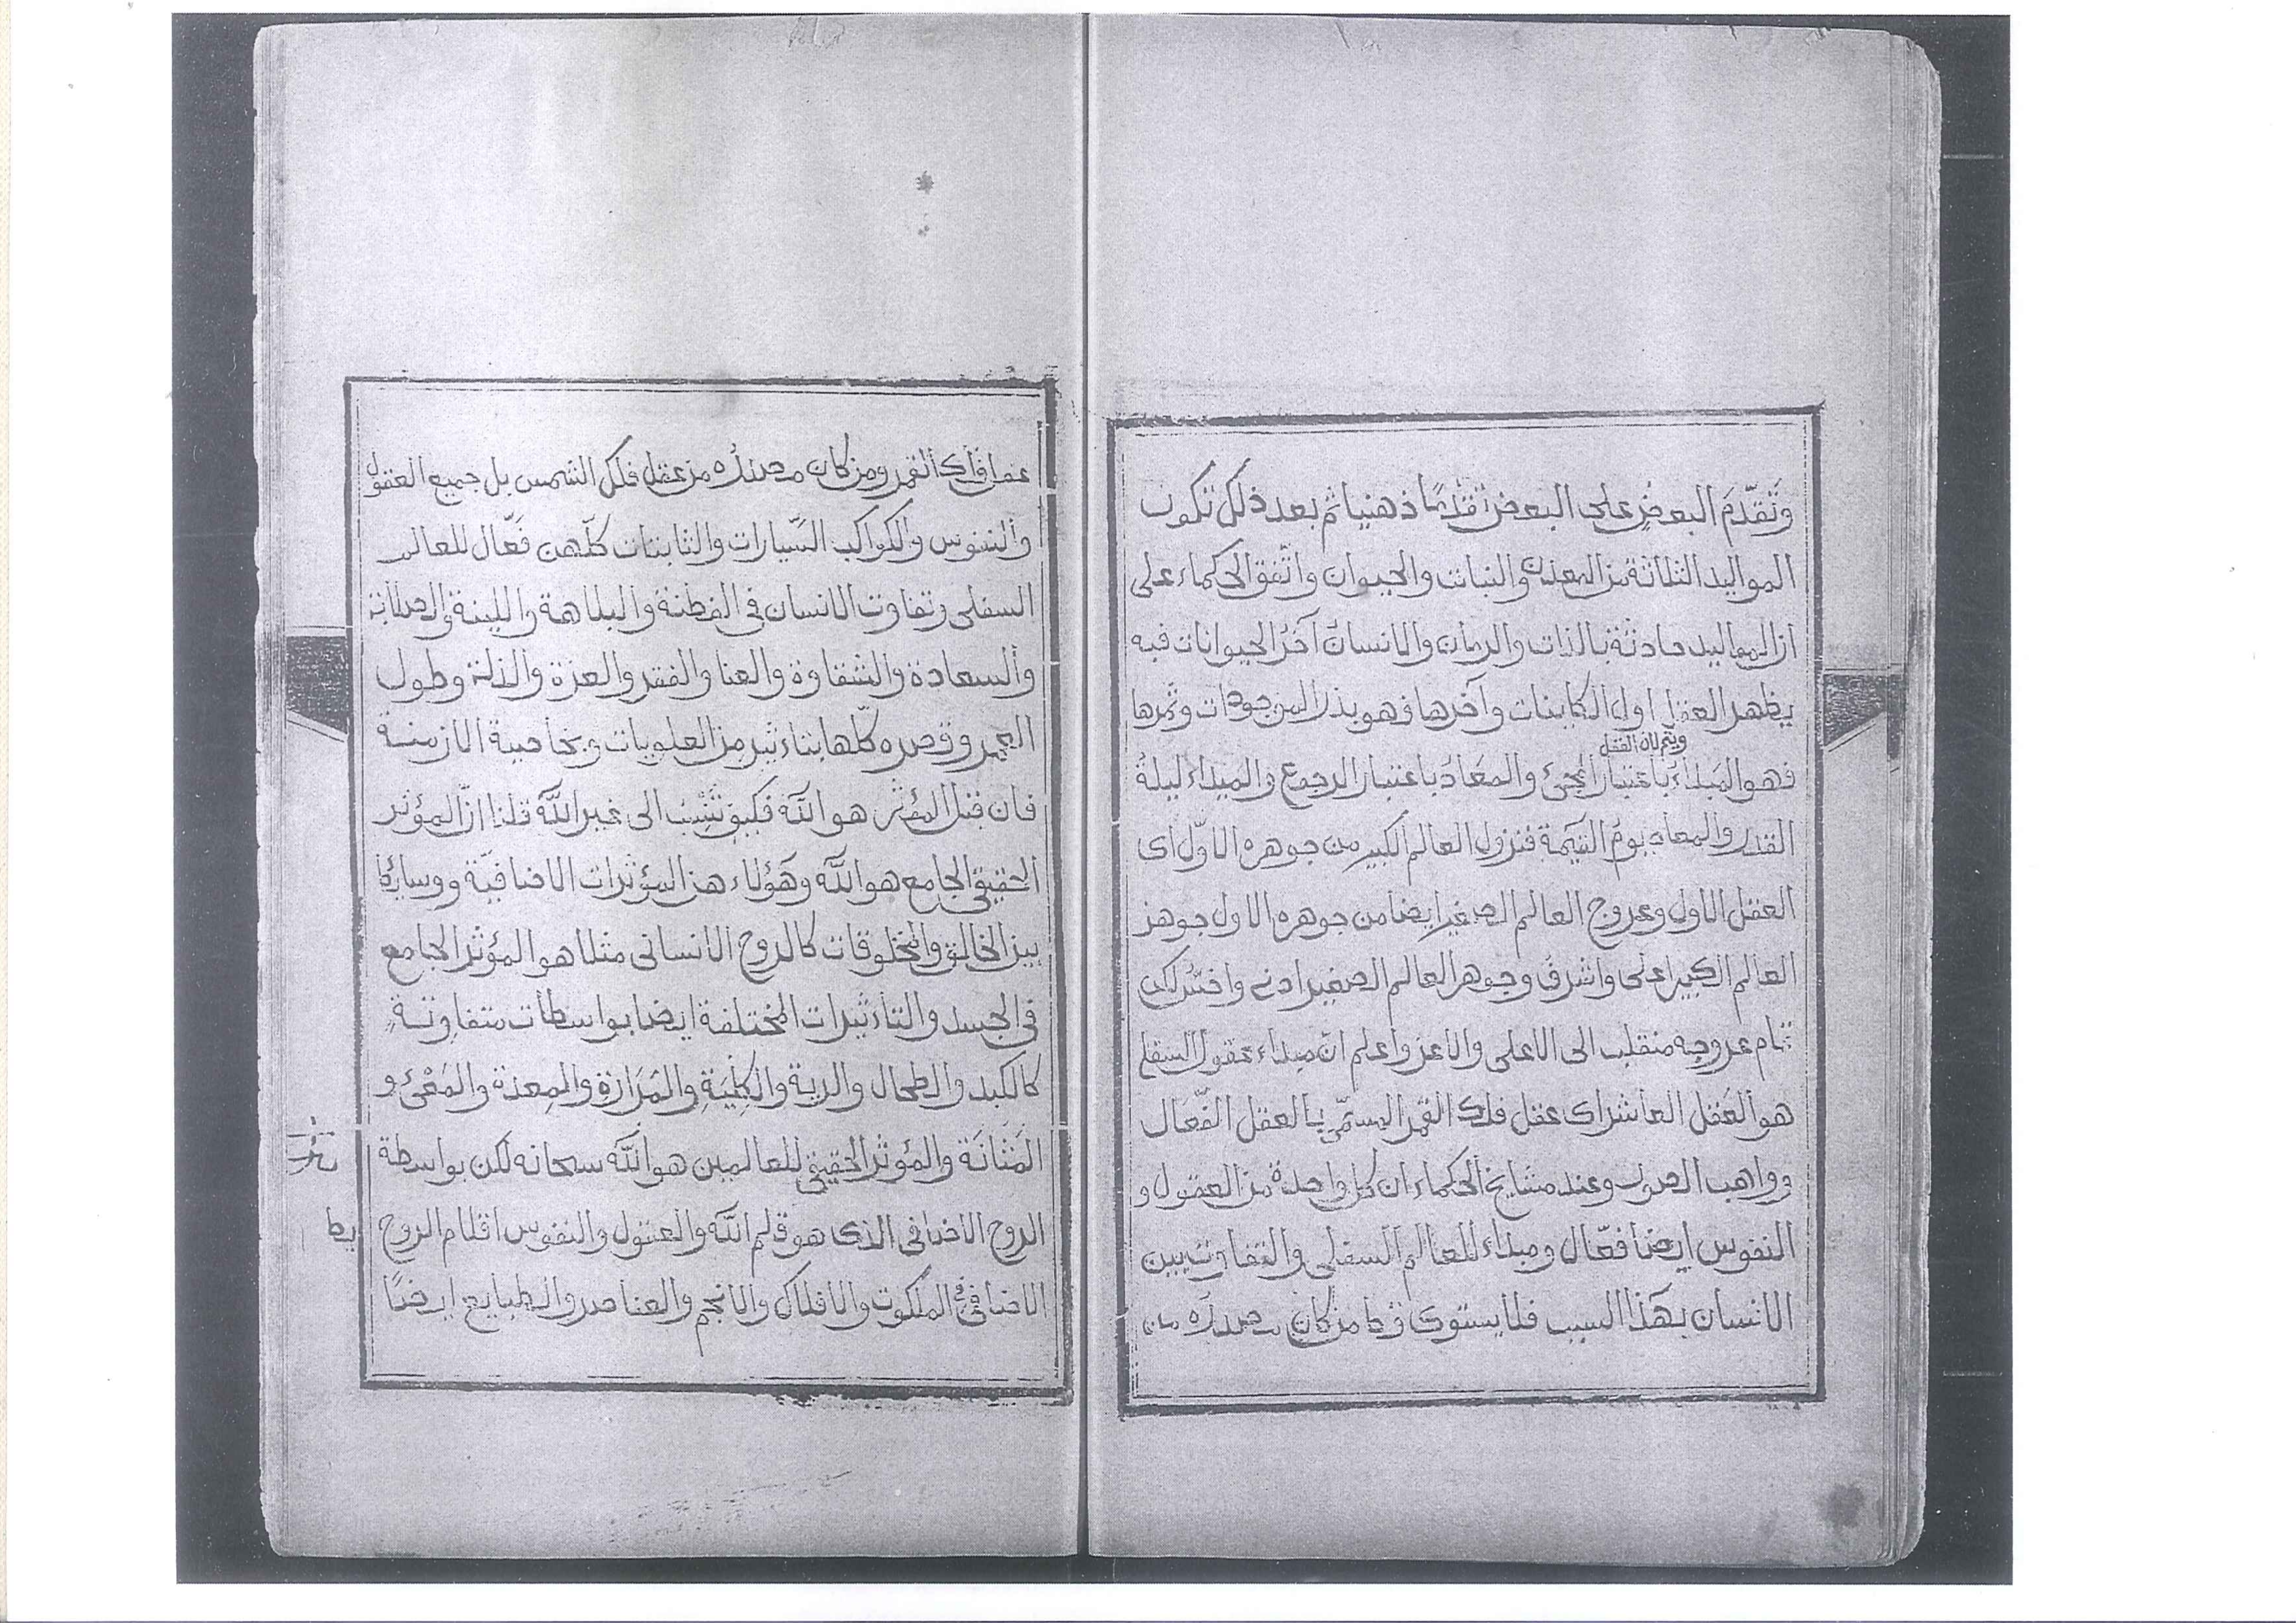 وَتَقَدّمَ البعضِ على البعض تقدّمًا ذهنيا ثم بعد ذلك تكون
المواليد الثلاثة من المعدن والنبات والحيوان واتّفق الحكماء على
ان المواليد حادثة بالذات والزمان والانسان آخرُ الحيوانات فيه
يظهر العقل اول الكاينات وآخرها فهو بذر الموجودات وثمرها
فهو المَبداءُ باعتبار المجئ والمعَادُ باعتبار الرجوع والمبداء ليلةُ
القدر والمعاد يومُ القيمة فنزول العالم الكبير من جوهره الاوّل اى
العقل الاول وعروج العالم الصغير ايضا من جوهره الاول جوهر
العالم الكبير اعلى واشرفُ وجوهر العالم الصغير ادنى واخسّ لكن
تمام عروجه منقلب الى الاعلى والاعز واعلم انّ مبداء عقول السفلى
هو العَقل العاشر اى عقل فلك القمر المسمّى بالعقل الفَعّال
وواهب الصور وعند مشايخ الحكماء ان كل واحدة من العقول و
النفوس ايضا فعّال ومبداء للعالم السفلى والتفاوت بين
الانسان بهَذا السبب فلا يستوى قط من كان مصدره من
عقل فلك القمر ومن كان مصدره من عقل فلك الشمس بل جميع العقول
والنفوس والكواكب السّيارات والثابتات كلّهن فَعّال للعالم
السفلى وتفاوت الانسان فى الفطنة والبلاهة واللينة والصلابة
والسعادة والشقاوة والغنا والفقر والعزة والذلة وطول
العمر وقصره كلّها بتاءثير من العلويات وبخاصية الازمنة
فان قيل المؤثر هو اللّه فكيف تُنْسَبُ الى غير اللّه قلنا انّ المؤثر
الحقيقى الجامع هو اللّه وهَؤلاء هن المؤثرات الاضافيّة ووسايط
بين الخالق والمخلوقات كالروح الانسانى مثلا هو المؤثر الجامع
فى الجسد والتأءثيرات المختلفة ايضا بواسطات متفاوتةٍ
كالكبد والطحال والرية والكِلْيَةِ والمَرَارَةِ والمِعدة والمَعْئ و
المَثَانَة والمؤثر الحقيقى للعالمين هو اللّه سبحانه لكن بواسطة
الروح الاضافى الذى هو قلم اللّه والعقول والنفوس اقلام الروح
الاضافى فى الملكوت والافلاك والانجم والعناصر والطبايع ايضًا